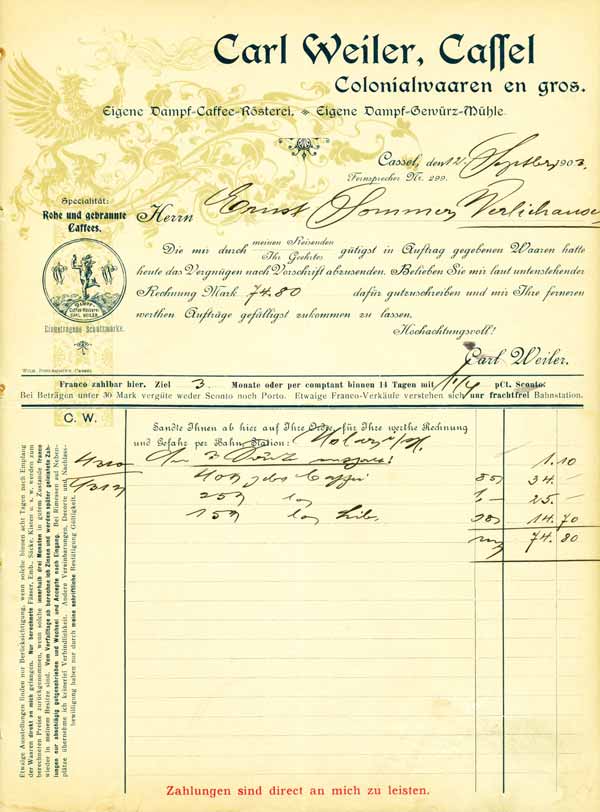 Carl Weiler, Cassel
Colonialwaaren en gros.
Eigene Dampf-Caffee-Rösterei. Eigene Dampf-Gewürz-Mühle.
Cassel, den 12. Septber 1903.
Fernsprecher Nr. 299.
Specialität:
Rohe und gebrannte
Caffees.
DAMPF-
Caffee-Rösterei
CARL WEILER.
Eingetragene Schutzmarke.
Herrn Ernst Sommer,
Die mir durch meinen Reisenden
Ihr Geehrtes gütigst in Auftrag gegebenen Waaren hatte
heute das Vergnügen nach Vorschrift abzusenden. Belieben Sie mir laut untenstehender
Rechnung Mark 74.80 dafür gutzuschreiben und mir Ihre ferneren
werthen Aufträge gefälligst zukommen zu lassen.
Hochachtungsvoll!
Carl Weiler.
Franco zahlbar hier. Ziel 3 Monate oder per comptant binnen 14 Tagen mit 1 1/4 pCt. Sconto.
Bei Beträgen unter 30 Mark vergüte weder Sconto noch Porto. Etwaige Franco-Verkäufe verstehen sich nur frachtfrei Bahnstation.
C. W.
Sandte Ihnen ab hier auf Ihre Ordre, für Ihre werthe Rechnung
und Gefahr per Bahn Station:
4310 1.10
4312 85 34.—
25 25.—
15 98 14.70
74.80
Etwaige Ausstellungen finden nur Berücksichtigung, wenn solche binnen acht Tagen nach Empfang
der Waaren direkt an mich gelangen. Nur berechnete Fässer, Emb. Säcke, Kisten u. s. w. werden zum
berechneten Preise zurückgenommen, wenn solche innerhalb drei Monaten in gutem Zustande franco
wieder in meinem Besitze sind. Vom Verfalltage ab berechne ich Zinsen und werden später geleistete Zah-
lungen nur abschlägig gutgeschrieben und Wechsel und Accepte nach Eingang. Bei Rimessen auf Neben-
plätze übernehme ich keinerlei Verbindlichkeit. Andere Vereinbarungen, Decorte und Nachlass-
bewilligung haben nur durch meine schriftliche Bestätigung Gültigkeit.
Zahlungen sind direct an mich zu leisten.